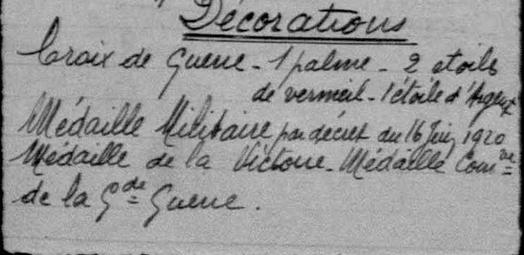 Décorations
Croix de Guerre - 1 palme - 2 etoiles
de vermeil - 1 étoile d'Argent
Médaille Militaire par décret du 16 Juin 1920
Médaille de la Victoire - Médaille Com^ve
de la G^de Guerre.